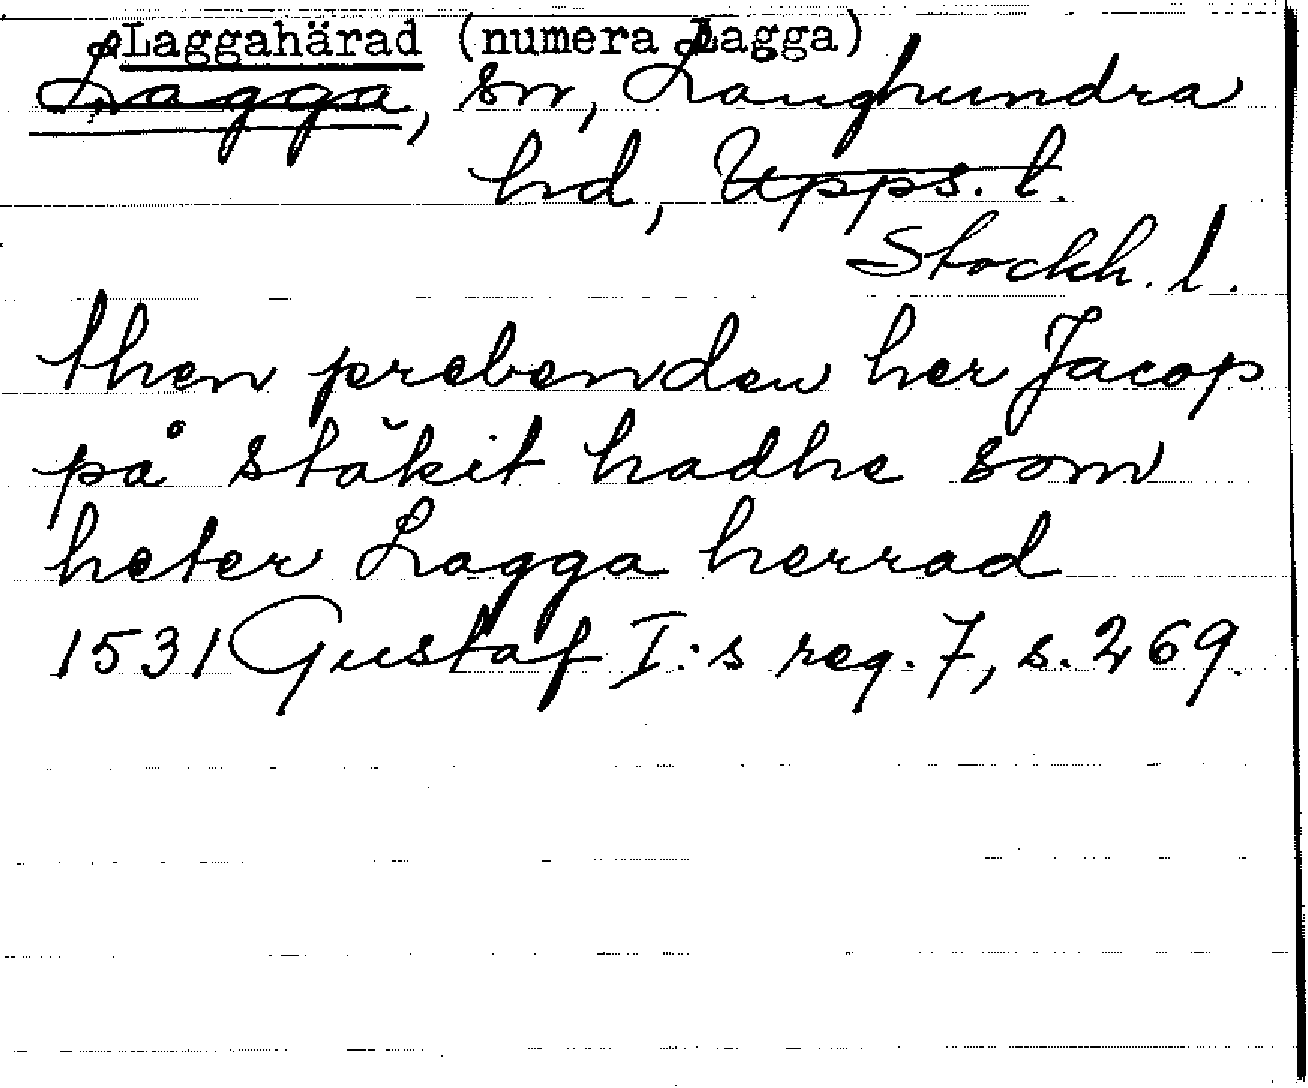 Laggahärad (numera Lagga)
Lagga, sn, Långhundra
hd, Upps. l.
Stockh. l.
then prebenden her Jacop
på stäkit hadhe som
heter Lagga herrad
1531 Gustaf I:s reg. 7, s. 269.